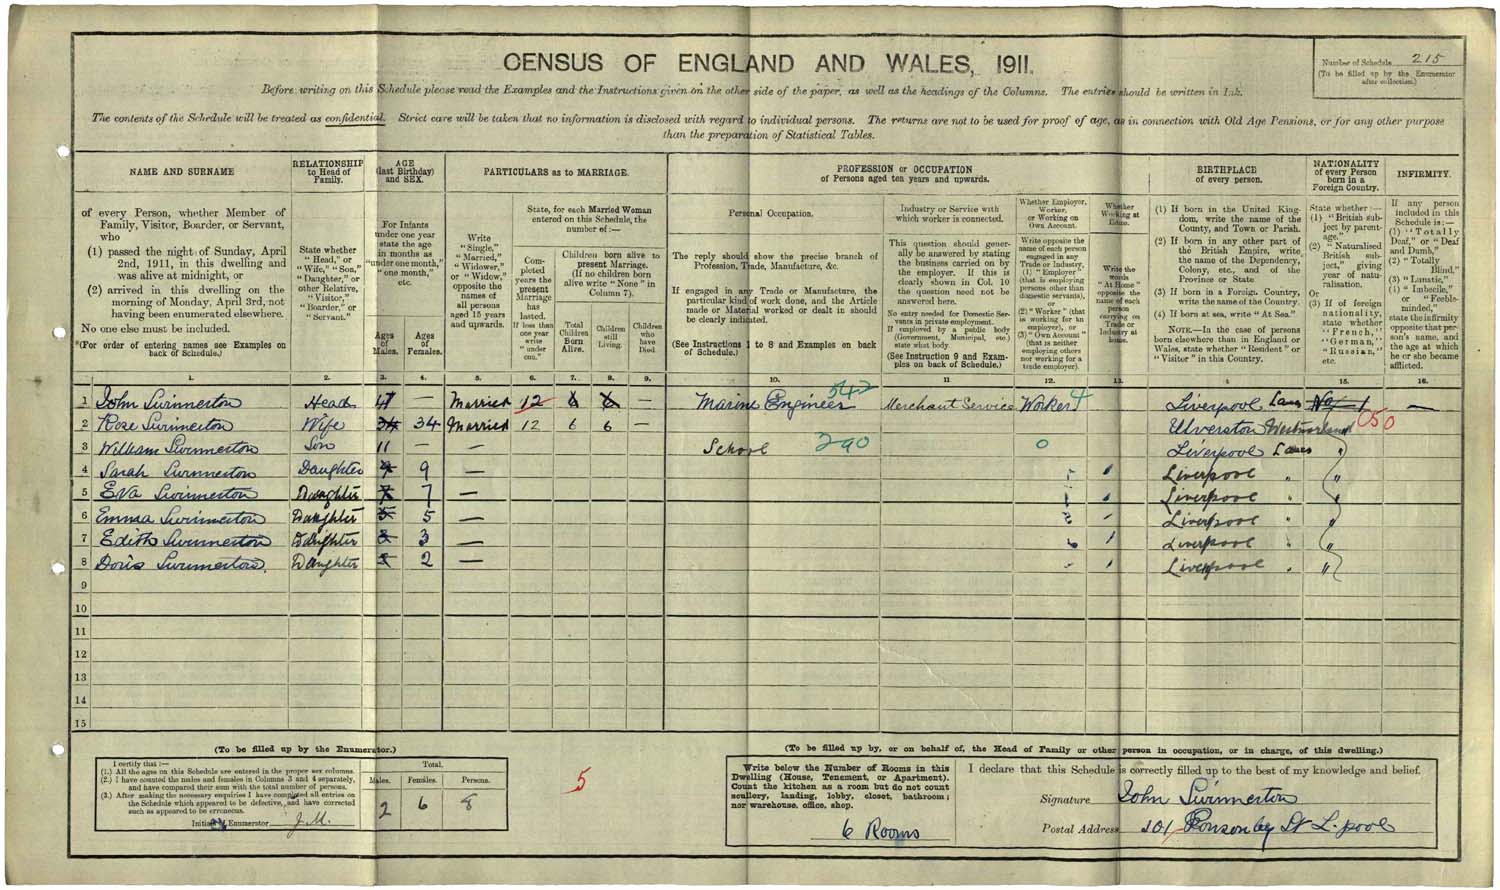 CENSUS OF ENGLAND AND WALES, 1911.
Number of Schedule 215
(To be filled up by the Enumerator
after collection.)
Before writing on this Schedule please read the Examples and the Instructions given on the other side of the paper, as well as the headings of the Columns. The entries should be written in Ink.
The contents of the Schedule will be treated as confidential. Strict care will be taken that no information is disclosed with regard to individual persons. The returns are not to be used for proof of age, as in connection with Old Age Pensions, or for any other purpose
than the preparation of Statistical Tables.
NAME AND SURNAME
of every Person, whether Member of
Family, Visitor, Boarder, or Servant,
who
(1) passed the night of Sunday, April
2nd, 1911, in this dwelling and
was alive at midnight, or
(2) arrived in this dwelling on the
morning of Monday, April 3rd, not
having been enumerated elsewhere.
No one else must be included.
*(For order of entering names see Examples on
back of Schedule.)
RELATIONSHIP
to Head of
Family.
State whether
"Head," or
"Wife," "Son,"
"Daughter," or
other Relative,
"Visitor,"
"Boarder," or
"Servant."
AGE
(last Birthday)
and SEX.
For Infants
under one year
state the age
in months as
"under one month,"
"one month,"
etc.
Ages
of
Males.
Ages
of
Females.
PARTICULARS as to MARRIAGE.
Write
"Single,"
"Married,"
"Widower,"
or "Widow,"
opposite the
names of
all persons
aged 15 years
and upwards.
State, for each Married Woman
entered on this Schedule, the
number of :—
Completed
years the
present
Marriage
has
lasted.
If less than
one year
write
"under
one."
Children born alive to
present Marriage.
(If no children born
alive write "None" in
Column 7).
Total
Children
Born
Alive.
Children
still
Living.
Children
who
have
Died.
PROFESSION or OCCUPATION
of Persons aged ten years and upwards.
Personal Occupation.
The reply should show the precise branch of
Profession, Trade, Manufacture, &c.
If engaged in any Trade or Manufacture, the
particular kind of work done, and the Article
made or Material worked or dealt in should
be clearly indicated.
(See Instructions 1 to 8 and Examples on back
of Schedule.)
Industry or Service with
which worker is connected.
This question should gener-
ally be answered by stating
the business carried on by
the employer. If this is
clearly shown in Col. 10
the question need not be
answered here.
No entry needed for Domestic Ser-
vants in private employment.
If employed by a public body
(Government, Municipal, etc.)
state what body.
(See Instruction 9 and Exam-
ples on back of Schedule.)
Whether Employer,
Worker,
or Working on
Own Account.
Write opposite the
name of each person
engaged in any
Trade or Industry,
(1) "Employer"
(that is employing
persons other than
domestic servants),
or
(2) "Worker" (that
is working for an
employer), or
(3) "Own Account"
(that is neither
employing others
nor working for a
trade employer).
Whether
Working at
Home.
Write the
words
"At Home"
opposite the
name of each
person
carrying on
Trade or
Industry at
home.
BIRTHPLACE
of every person.
(1) If born in the United King-
dom, write the name of the
County, and Town or Parish.
(2) If born in any other part of
the British Empire, write
the name of the Dependency,
Colony, etc., and of the
Province or State
(3) If born in a Foreign Country,
write the name of the Country.
(4) If born at sea, write "At Sea."
NOTE.—In the case of persons
born elsewhere than in England or
Wales, state whether "Resident" or
"Visitor" in this Country.
NATIONALITY
of every Person
born in a
Foreign Country.
State whether :—
(1) "British sub-
ject by parent-
age."
(2) "Naturalised
British sub-
ject," giving
year of natu-
ralisation.
Or
(3) If of foreign
nationality,
state whether
"French,"
"German,"
"Russian,"
etc.
INFIRMITY.
If any person
included in this
Schedule is :—
(1) "Totally
Deaf," or "Deaf
and Dumb,"
(2) "Totally
Blind,"
(3) "Lunatic,"
(4) "Imbecile,"
or "Feeble-
minded,"
state the infirmity
opposite that per-
son's name, and
the age at which
he or she became
afflicted.
1. 2. 3. 4. 5. 6. 7. 8. 9. 10. 11. 12. 13. 15. 16.
1 John Swinnerton Head — Married 12 6 6 — Marine Engineer 542 Merchant Service Worker 4 Liverpool Lancs —
2 Rose Swinnerton Wife 34 34 Married 12 6 6 — Ulverston Westmorland 050
3 William Swinnerton Son 11 — — School 290 0 Liverpool Lancs "
4 Sarah Swinnerton Daughter 9 9 — Liverpool " "
5 Eva Swinnerton Daughter 7 7 — Liverpool " "
6 Emma Swinnerton Daughter 5 5 — Liverpool " "
7 Edith Swinnerton Daughter 3 3 — Liverpool " "
8 Doris Swinnerton. Daughter 2 — Liverpool " "
9
10
11
12
13
14
15
(To be filled up by the Enumerator.)
I certify that :—
(1.) All the ages on this Schedule are entered in the proper sex columns.
(2.) I have counted the males and females in Columns 3 and 4 separately,
and have compared their sum with the total number of persons.
(3.) After making the necessary enquiries I have completed all entries on
the Schedule which appeared to be defective, and have corrected
such as appeared to be erroneous.
Initials of Enumerator J.M.
Total.
Males. Females. Persons.
2 6 8
5
(To be filled up by, or on behalf of, the Head of Family or other person in occupation, or in charge, of this dwelling.)
Write below the Number of Rooms in this
Dwelling (House, Tenement, or Apartment).
Count the kitchen as a room but do not count
scullery, landing, lobby, closet, bathroom;
nor warehouse, office, shop.
6 Rooms
I declare that this Schedule is correctly filled up to the best of my knowledge and belief.
Signature John Swinnerton
Postal Address 101 Ponsonby St L.pool